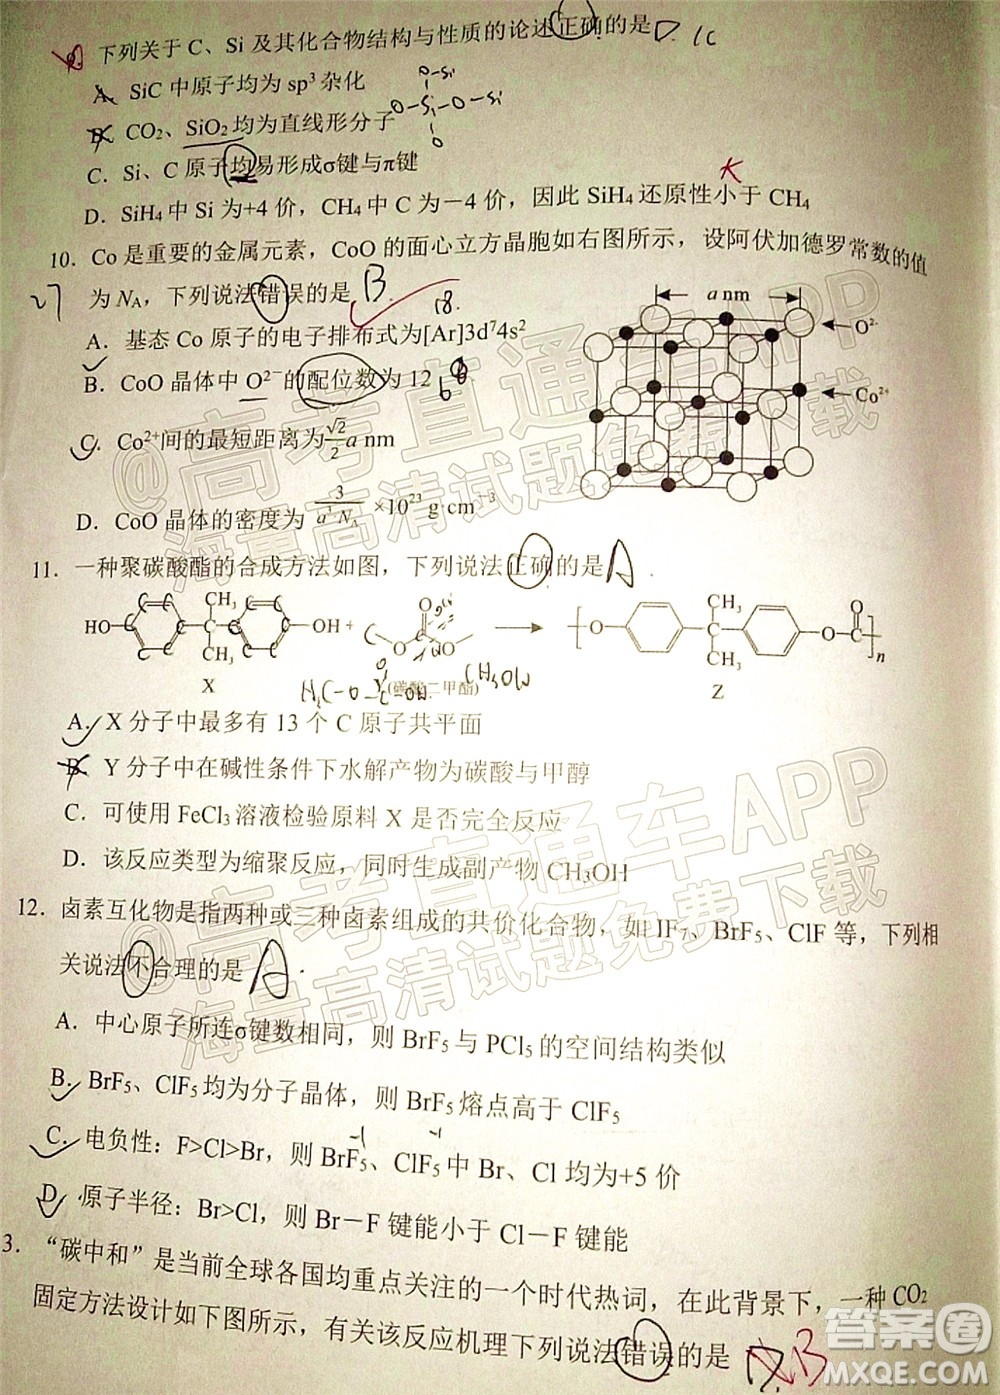 9. 下列关于 C、Si 及其化合物结构与性质的论述正确的是 D. 1C
A. SiC 中原子均为 sp³ 杂化
B. CO₂、SiO₂ 均为直线形分子
C. Si、C 原子均易形成σ键与π键
D. SiH₄ 中 Si 为+4 价，CH₄ 中 C 为－4 价，因此 SiH₄ 还原性小于 CH₄
10. Co 是重要的金属元素，CoO 的面心立方晶胞如右图所示，设阿伏加德罗常数的值
27 为 N_A，下列说法错误的是 B
18.
A. 基态 Co 原子的电子排布式为[Ar]3d⁷4s²
B. CoO 晶体中 O²⁻的配位数为 12 6
C. Co²⁺间的最短距离为 √2/2 a nm
D. CoO 晶体的密度为 3/(a³N_A) ×10²³ g·cm⁻³
a nm
O²⁻
Co²⁺
11. 一种聚碳酸酯的合成方法如图，下列说法正确的是 A
HO CH₃ C CH₃ OH + O O O → [O CH₃ C CH₃ OC O]n
X Y(碳酸二甲酯) Z
CH₃OH
A. X 分子中最多有 13 个 C 原子共平面
B. Y 分子中在碱性条件下水解产物为碳酸与甲醇
C. 可使用 FeCl₃ 溶液检验原料 X 是否完全反应
D. 该反应类型为缩聚反应，同时生成副产物 CH₃OH
12. 卤素互化物是指两种或三种卤素组成的共价化合物，如 IF₇、BrF₅、ClF 等，下列相
关说法不合理的是 A
A. 中心原子所连σ键数相同，则 BrF₅ 与 PCl₅ 的空间结构类似
B. BrF₅、ClF₅ 均为分子晶体，则 BrF₅ 熔点高于 ClF₅
-1 -1
C. 电负性：F>Cl>Br，则 BrF₅、ClF₅ 中 Br、Cl 均为+5 价
D. 原子半径：Br>Cl，则 Br－F 键能小于 Cl－F 键能
3. “碳中和”是当前全球各国均重点关注的一个时代热词，在此背景下，一种 CO₂
固定方法设计如下图所示，有关该反应机理下列说法错误的是 B
@高考直通车APP
海量高清试题免费下载
@高考直通车APP
海量高清试题免费下载
答案圈
MXQE.COM